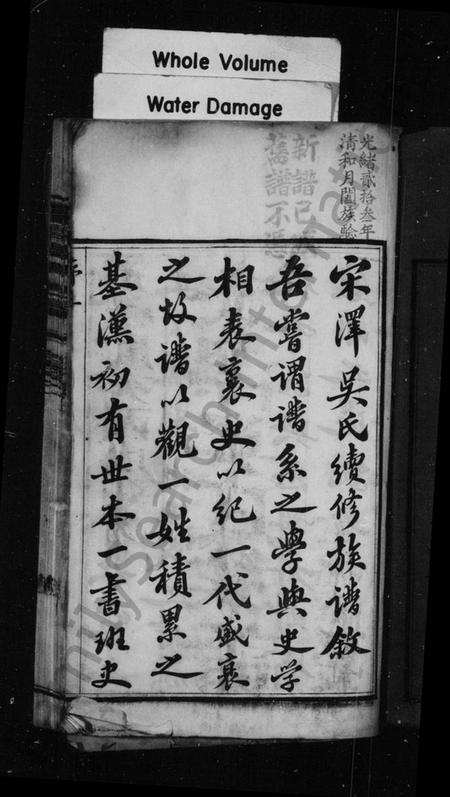 Whole Volume
Water Damage
光緒貳拾叁年
清和月闔族驗
新譜已
舊譜不憑
宋澤吳氏續修族譜敘
吾嘗謂譜系之學與史学
相表裏史以紀一代盛衰
之故譜以觀一姓積累之
基漢初有世本一書班史
序